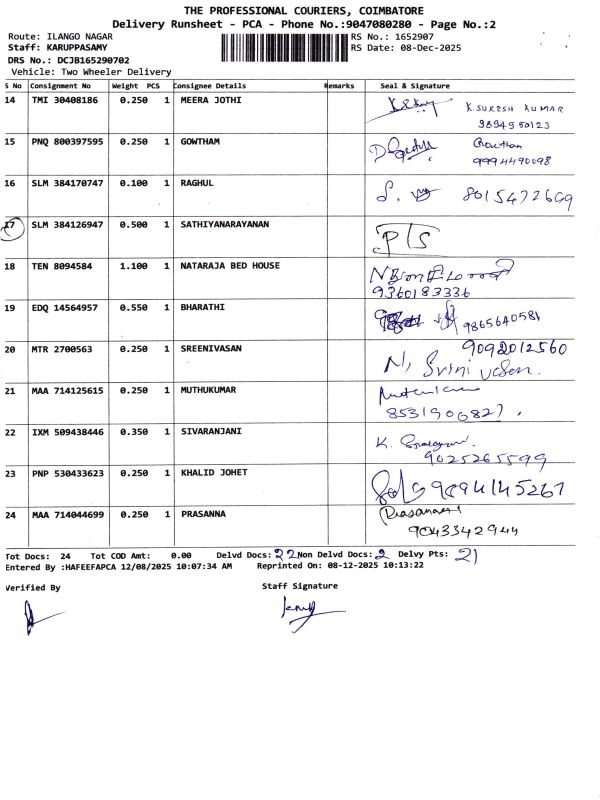 THE PROFESSIONAL COURIERS, COIMBATORE
Delivery Runsheet - PCA - Phone No.:9047080280 - Page No.:2
Route: ILANGO NAGAR RS No.: 1652907
Staff: KARUPPASAMY RS Date: 08-Dec-2025
DRS No.: DCJB165290702
Vehicle: Two Wheeler Delivery
S No Consignment No Weight PCS Consignee Details Remarks Seal & Signature
14 TMI 30408186 0.250 1 MEERA JOTHI K. SURESH KUMAR
9894950123
15 PNQ 800397595 0.250 1 GOWTHAM Gowtham
9994490098
16 SLM 384170747 0.100 1 RAGHUL 8015472699
17 SLM 384126947 0.500 1 SATHIYANARAYANAN P/S
18 TEN 8094584 1.100 1 NATARAJA BED HOUSE
9360183336
19 EDQ 14564957 0.550 1 BHARATHI 9865640581
20 MTR 2700563 0.250 1 SREENIVASAN 9092012560
N. Srinivasan.
21 MAA 714125615 0.250 1 MUTHUKUMAR
8531906827.
22 IXM 509438446 0.350 1 SIVARANJANI
9025265599
23 PNP 530433623 0.250 1 KHALID JOHET 9894145267
24 MAA 714044699 0.250 1 PRASANNA Prasanna
9043342944
Tot Docs: 24 Tot COD Amt: 0.00 Delvd Docs: 22 Non Delvd Docs: 2 Delvy Pts: 21
Entered By :HAFEEFAPCA 12/08/2025 10:07:34 AM Reprinted On: 08-12-2025 10:13:22
Verified By Staff Signature